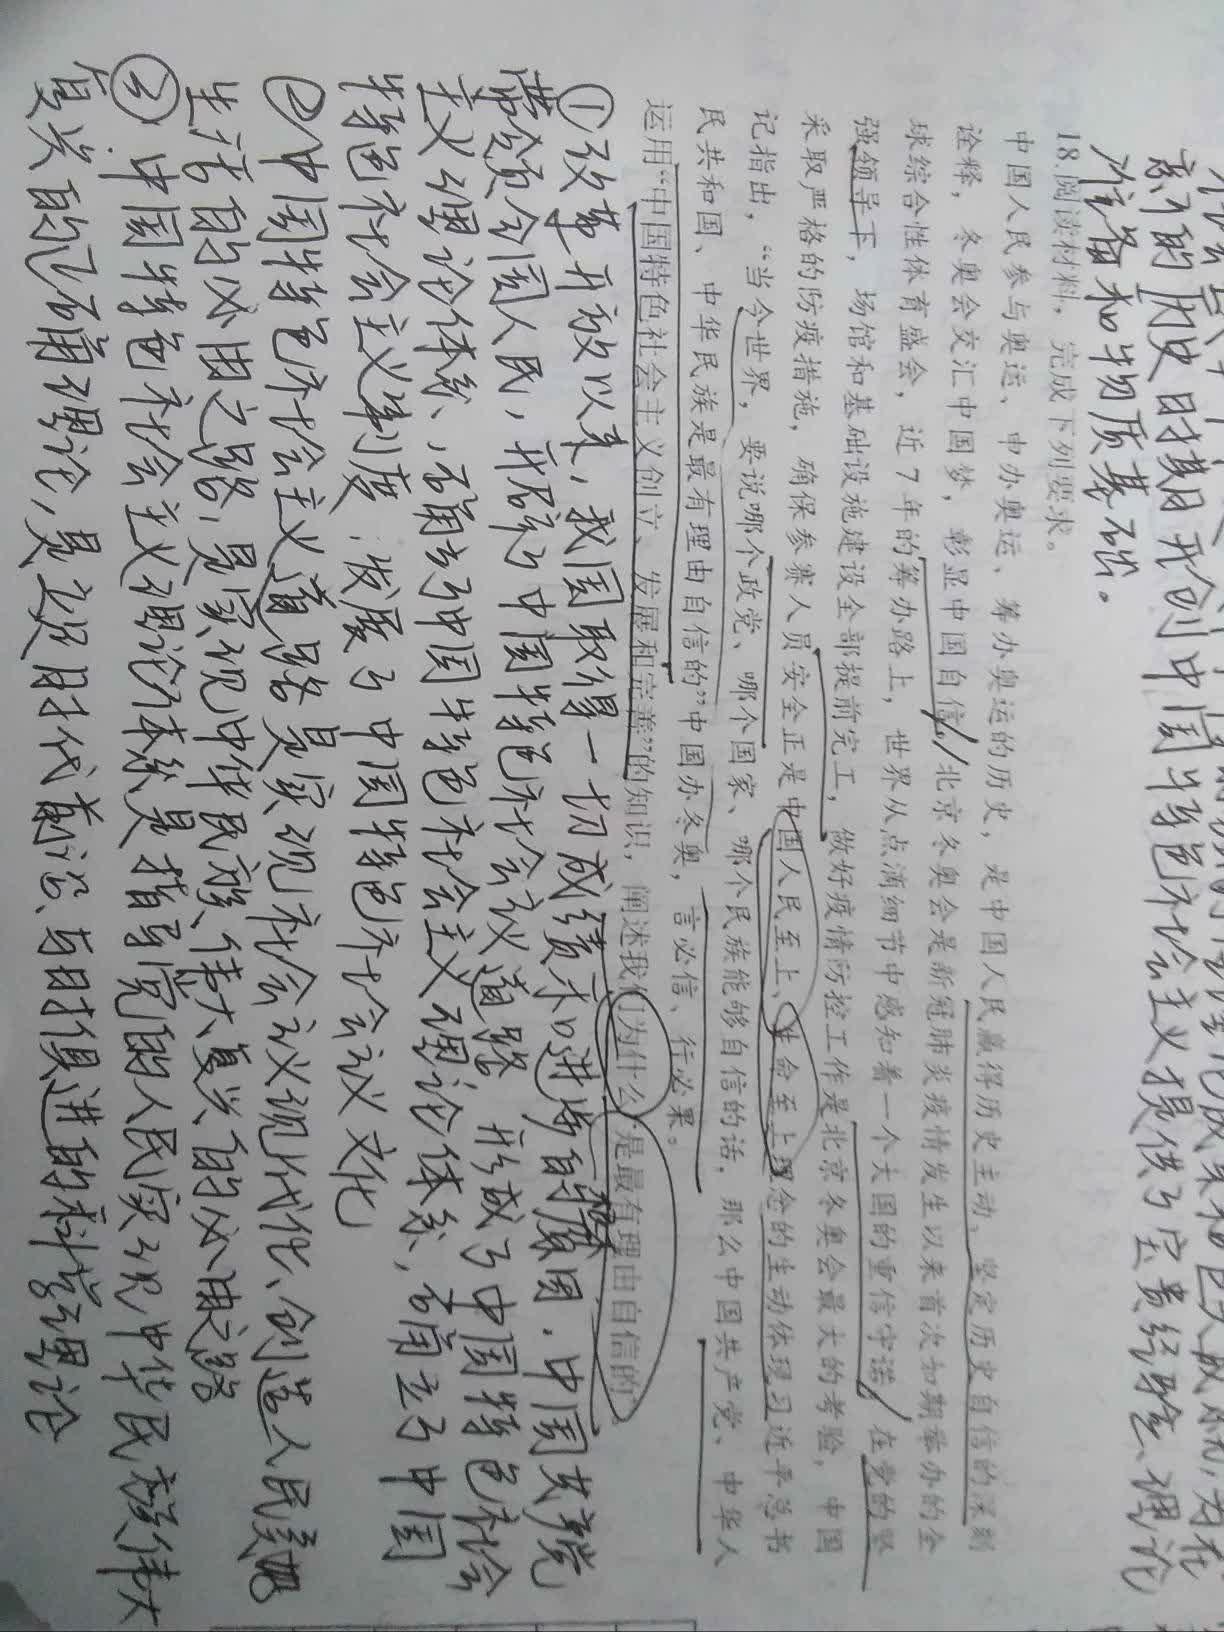 新的历史时期开创中国特色社会主义提供了宝贵经验、理论
准备和物质基础。
18.阅读材料，完成下列要求。
中国人民参与奥运、申办奥运、筹办奥运的历史，是中国人民赢得历史主动、坚定历史自信的深刻
诠释，冬奥会交汇中国梦，彰显中国自信。北京冬奥会是新冠肺炎疫情发生以来首次如期举办的全
球综合性体育盛会，近7年的筹办路上，世界从点滴细节中感知着一个大国的重信守诺。在党的坚
强领导下，场馆和基础设施建设全部提前完工，做好疫情防控工作是北京冬奥会最大的考验，中国
采取严格的防疫措施，确保参赛人员安全正是中国人民至上、生命至上理念的生动体现习近平总书
记指出，“当今世界，要说哪个政党、哪个国家、哪个民族能够自信的话，那么中国共产党、中华人
民共和国、中华民族是最有理由自信的”中国办冬奥，言必信、行必果。
运用“中国特色社会主义创立、发展和完善”的知识，阐述我们为什么“是最有理由自信的”
①改革开放以来，我国取得一切成绩和进步的原因．中国共产党
带领全国人民，开辟了中国特色社会议道路 形成了中国特色社会
主义理论体系、确立了中国特色社会主义理论体系，确立了中国
特色社会主义制度．发展了中国特色社会议文化
②中国特色社会主义道路是实现社会议现代化、创造人民美好
生活的必由之路，是实现中华民族伟大复兴的必由之路
③中国特色社会主义理论体系是指导党的人民实现中华民族伟大
复兴的正确理论，是立足时代前沿、与时俱进的科学理论